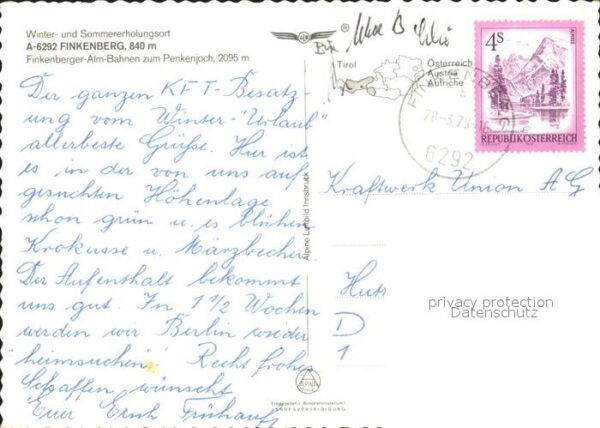 Winter- und Sommererholungsort
A-6292 FINKENBERG, 840 m
Finkenberger-Alm-Bahnen zum Penkenjoch, 2095 m
ALPINE
®
Tirol
Österreich
Austria
Autriche
4S
REPUBLIK ÖSTERREICH
FINKENBERG
28.-3.79-16
6292
Der ganzen KFT-Besatz-
ung vom Winter-"Urlaub"
allerbeste Grüße. Hier ist
es in der von uns auf-
gesuchten Höhenlage
schon grün u. es blühen
Krokusse u. Märzbecher
Der Aufenthalt bekommt
uns gut. In 1 1/2 Wochen
werden wir Berlin wieder
"heimsuchen". Recht frohes
Schaffen wünscht
Euer Erich Frühauf
Alpine Luftbild Innsbruck
Kraftwerk Union AG
D
1
privacy protection
Datenschutz
ALPINE
Freigegeben v. Bundesministerium f.
LANDESVERTEIDIGUNG